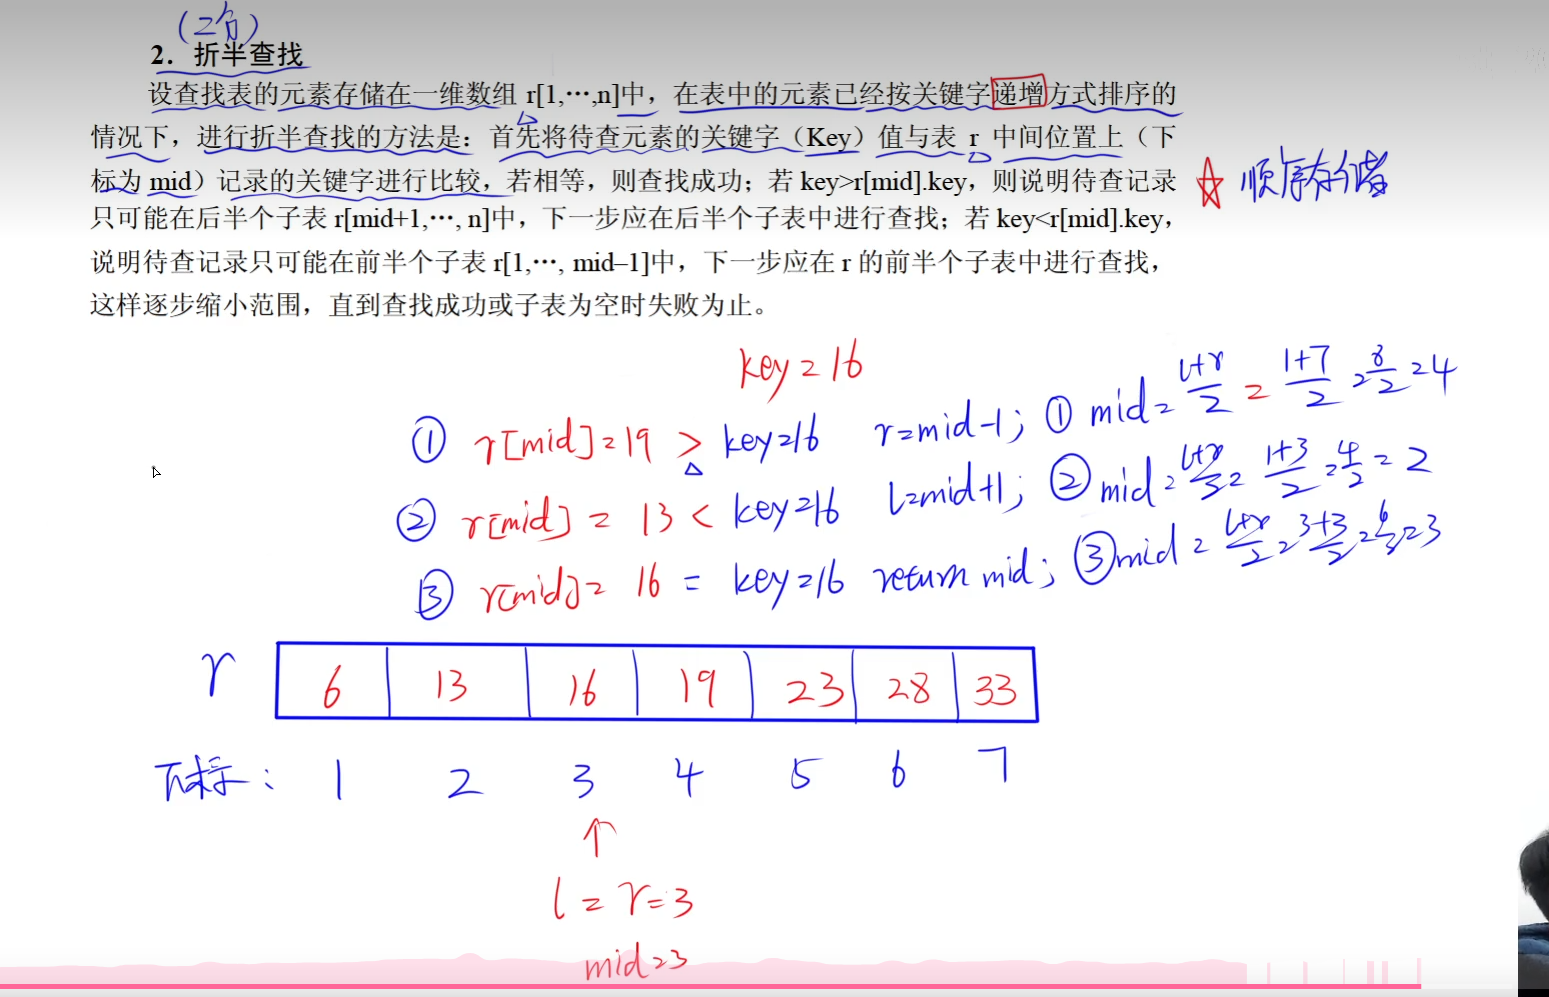 (2分)
2. 折半查找
设查找表的元素存储在一维数组 r[1,…,n]中，在表中的元素已经按关键字递增方式排序的
情况下，进行折半查找的方法是：首先将待查元素的关键字（Key）值与表 r 中间位置上（下
标为 mid）记录的关键字进行比较，若相等，则查找成功；若 key>r[mid].key，则说明待查记录
☆ 顺序存储
只可能在后半个子表 r[mid+1,…, n]中，下一步应在后半个子表中进行查找；若 key<r[mid].key，
说明待查记录只可能在前半个子表 r[1,…, mid–1]中，下一步应在 r 的前半个子表中进行查找，
这样逐步缩小范围，直到查找成功或子表为空时失败为止。
key=16
① r[mid]=19 > key=16 r=mid-1; ① mid=(l+r)/2=(1+7)/2=8/2=4
② r[mid]=13 < key=16 l=mid+1; ② mid=(l+r)/2=(1+3)/2=4/2=2
③ r[mid]=16 = key=16 return mid; ③ mid=(l+r)/2=(3+3)/2=6/2=3
r 6 13 16 19 23 28 33
下标: 1 2 3 4 5 6 7
↑
l=r=3
mid=3